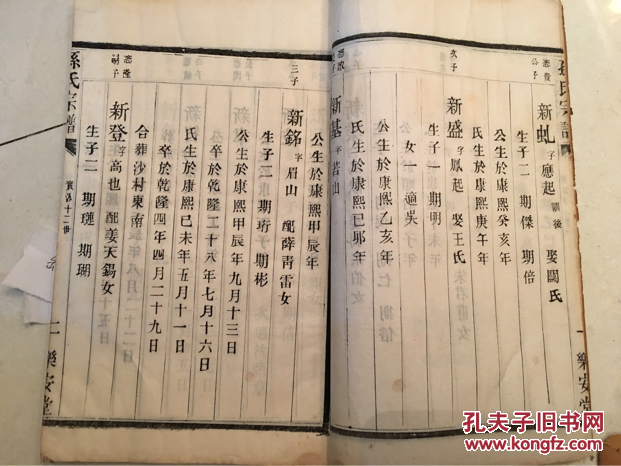 孫氏宗譜
樂安堂
志發公子
新虬字應起嗣後娶闞氏
公生於康熙癸亥年
氏生於康熙庚午年
生子二期傑期倍
次子
新盛字鳳起娶王氏
生子一期明
女一適吳
公生於康熙乙亥年
氏生於康熙己卯年
新基字若山
公生於康熙甲辰年
三子
新銘字眉山配薛青雷女
生子二期珩期彬
公生於康熙甲辰年九月十三日
公卒於乾隆二十八年七月十六日
氏生於康熙己未年五月十一日
卒於乾隆四年四月二十九日
合葬沙村東南
志隆嗣子
新登字高也配姜天錫女
生子二期璉期瑚
孫氏宗譜
二
樂安堂
孔夫子旧书网
www.kongfz.com